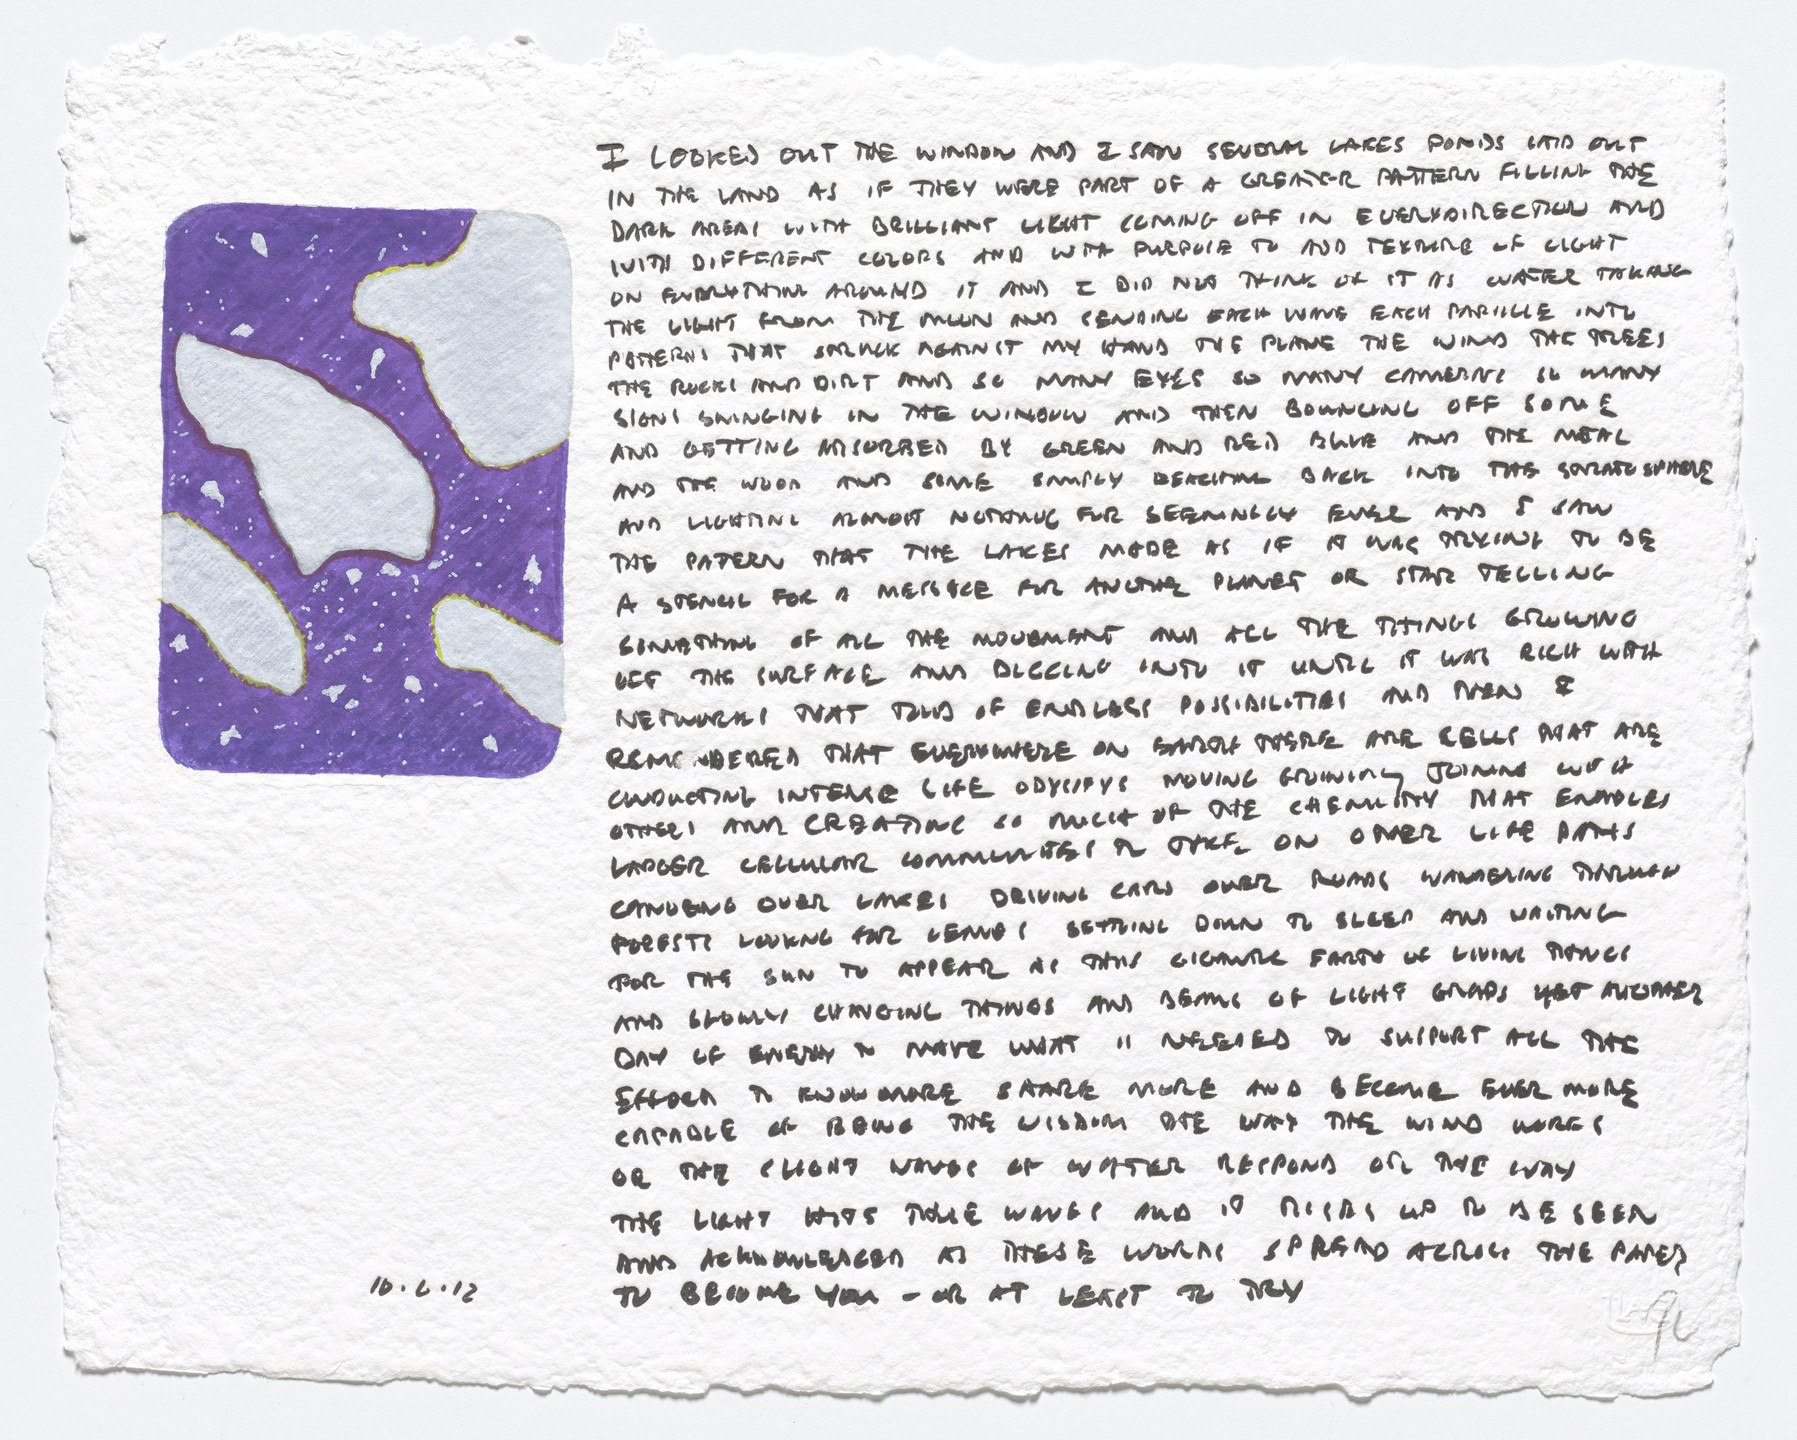 I LOOKED OUT THE WINDOW AND I SAW SEVERAL LAKES PONDS LAID OUT
IN THE LAND AS IF THEY WERE PART OF A GREATER PATTERN FILLING THE
DARK AREAS WITH BRILLIANT LIGHT COMING OFF IN EVERY DIRECTION AND
WITH DIFFERENT COLORS AND WITH PURPOSE TO ADD TEXTURE OF LIGHT
ON EVERYTHING AROUND IT AND I DID NOT THINK OF IT AS WATER TAKING
THE LIGHT FROM THE MOON AND SENDING EACH WAVE EACH PARTICLE INTO
PATTERNS THAT STRUCK AGAINST MY HAND THE PLANE THE WIND THE TREES
THE ROCKS AND DIRT AND SO MANY EYES SO MANY CAMERAS SO MANY
SIGNS SWINGING IN THE WINDOW AND THEN BOUNCING OFF SOME
AND GETTING ABSORBED BY GREEN AND RED BLUE AND THE METAL
AND THE WOOD AND SOME SIMPLY BEACHING BACK INTO THE STRATOSPHERE
AND LIGHTING ALMOST NOTHING FOR SEEMINGLY EVER AND I SAW
THE PATERN THAT THE LAKES MADE AS IF IT WAS TRYING TO BE
A STENCIL FOR A MESSAGE FOR ANOTHER PLANET OR STAR TELLING
SOMETHING OF ALL THE MOVEMENT AND ALL THE THINGS GROWING
OFF THE SURFACE AND DIGGING INTO IT UNTIL IT WAS RICH WITH
NETWORKS THAT TOLD OF ENDLESS POSSIBILITIES AND THEN I
REMEMBERED THAT EVERYWHERE ON EARTH THERE ARE CELLS THAT ARE
CONDUCTING INTENSE LIFE ODYSSYS MOVING GROWING JOINING WITH
OTHERS AND CREATING SO MUCH OF THE CHEMISTRY THAT ENABLES
LARGER CELLULAR COMMUNITIES TO TAKE ON OTHER LIFE PATHS
CANOEING OVER LAKES DRIVING CARS OVER ROADS WANDERING THROUGH
FORESTS LOOKING FOR LEAVES SETTLING DOWN TO SLEEP AND WAITING
FOR THE SUN TO APPEAR AS THIS GIGANTIC EARTH OF LIVING THINGS
AND SLOWLY CHANGING THINGS AND BEAMS OF LIGHT GRABS YET ANOTHER
DAY OF ENERGY TO MAKE WHAT IS NEEDED TO SUPPORT ALL THE
EFFORT TO KNOW MORE SHARE MORE AND BECOME EVER MORE
CAPABLE OF BEING THE WISDOM THE WAY THE WIND WORKS
OR THE SLIGHT WAVES OF WATER RESPOND OR THE WAY
THE LIGHT HITS THOSE WAVES AND IT RISES UP TO BE SEEN
AND ACKNOWLEDGED AS THESE WORDS SPREAD ACROSS THE PAPER
TO BECOME YOU – OR AT LEAST TO TRY
10.6.12